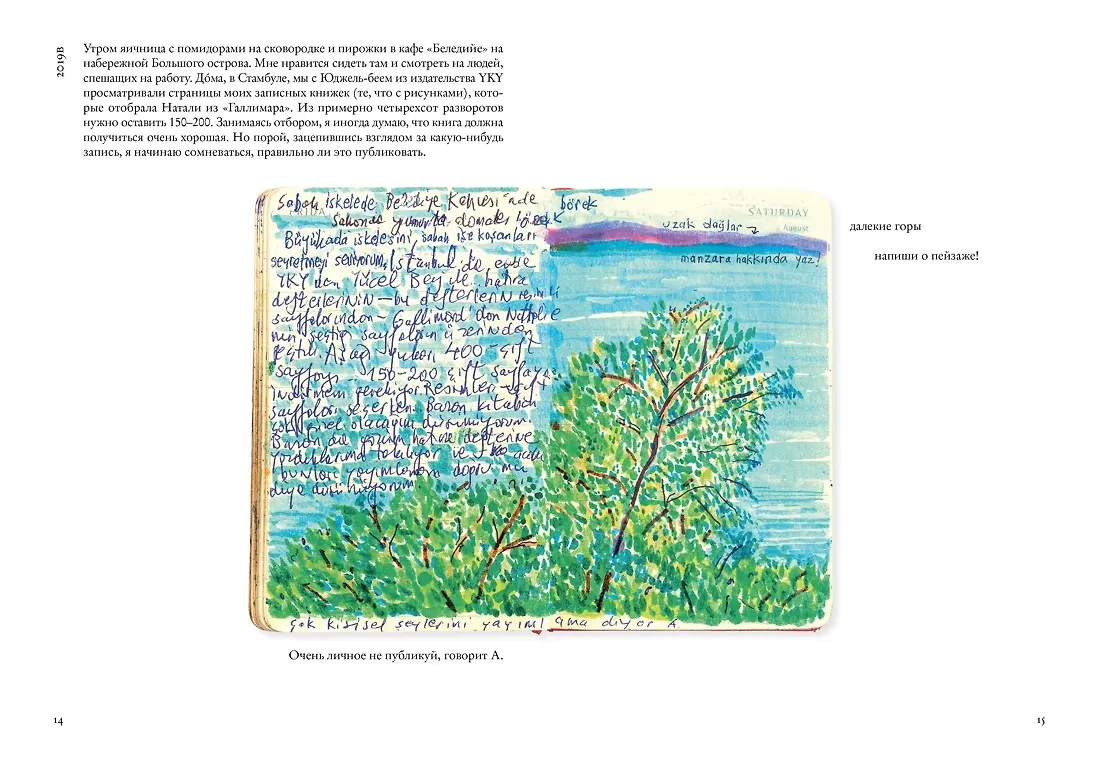 2019В
Утром яичница с помидорами на сковородке и пирожки в кафе «Беледийе» на
набережной Большого острова. Мне нравится сидеть там и смотреть на людей,
спешащих на работу. До́ма, в Стамбуле, мы с Юджель-беем из издательства YKY
просматривали страницы моих записных книжек (те, что с рисунками), кото-
рые отобрала Натали из «Галлимара». Из примерно четырехсот разворотов
нужно оставить 150–200. Занимаясь отбором, я иногда думаю, что книга должна
получиться очень хорошая. Но порой, зацепившись взглядом за какую-нибудь
запись, я начинаю сомневаться, правильно ли это публиковать.
Sabah iskelede Belediye Kahvesi'nde börek
FRIDAY
Sahanda yumurta domates börek
Büyükada iskelesini, sabah işe koşanları
seyretmeyi seviyorum. İstanbul'da evde
YKY'den Yücel Bey ile hatıra
defterlerinin – bu defterlerin resimli
sayfalarından – Gallimard'dan Nathalie'
nin seçtiği sayfaların üzerinden
geçtik. Aşağı yukarı 400 çift
sayfayı 150-200 çift sayfaya
indirmem gerekiyor. Resimler
sayfaları seçerken Bazan kitabın
çok güzel olacağını düşünüyorum
Bazan da gözüm hatıra defterine
yazdıklarıma takılıyor ve
bunları yayımlamam doğru mu
diye düşünüyorum
SATURDAY
August
uzak dağlar
manzara hakkında yaz!
далекие горы
напиши о пейзаже!
çok kişisel şeylerini yayımlama diyor A.
Очень личное не публикуй, говорит А.
14
15